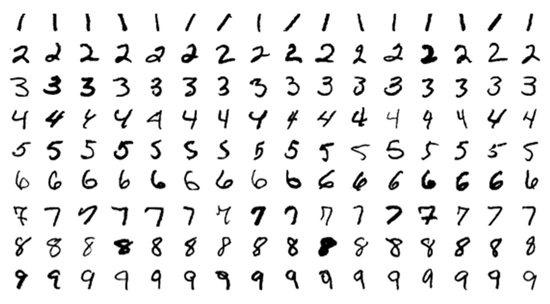 1 1 1 1 1 1 1 1 1 1 1 1 1 1 1 1
2 2 2 2 2 2 2 2 2 2 2 2 2 2 2 2
3 3 3 3 3 3 3 3 3 3 3 3 3 3 3 3
4 4 4 4 4 4 4 4 4 4 4 4 4 4 4 4
5 5 5 5 5 5 5 5 5 5 5 5 5 5 5 5
6 6 6 6 6 6 6 6 6 6 6 6 6 6 6 6
7 7 7 7 7 7 7 7 7 7 7 7 7 7 7 7
8 8 8 8 8 8 8 8 8 8 8 8 8 8 8 8
9 9 9 9 9 9 9 9 9 9 9 9 9 9 9 9